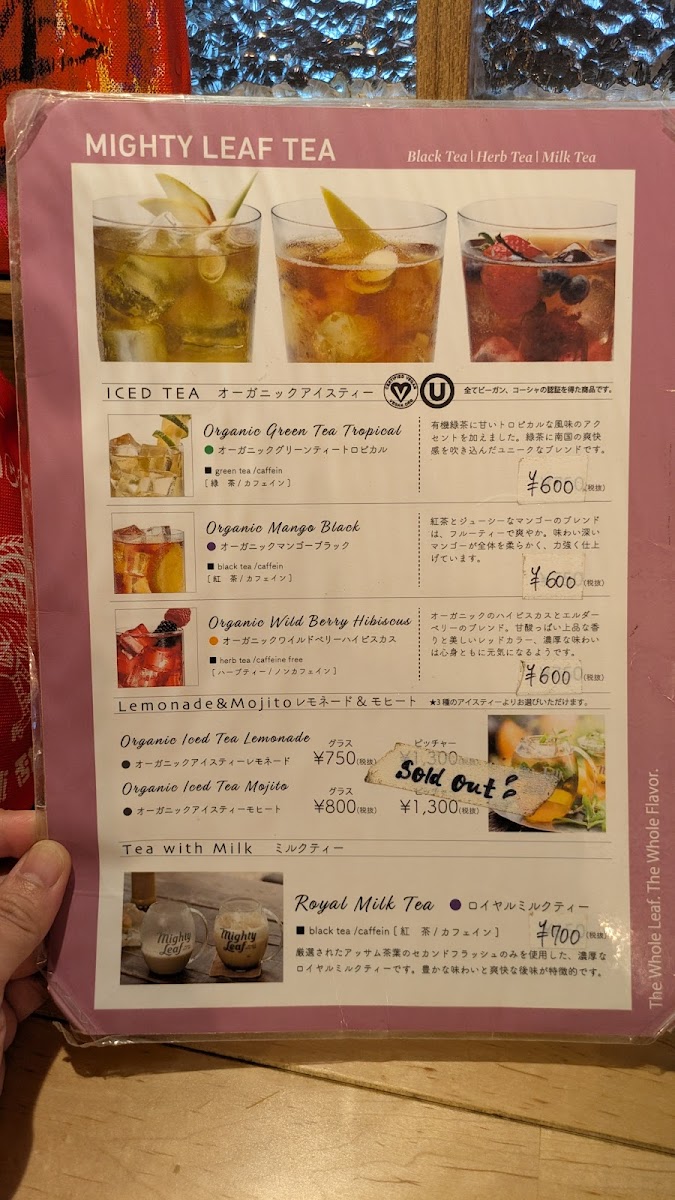 MIGHTY LEAF TEA
Black Tea | Herb Tea | Milk Tea
ICED TEA オーガニックアイスティー
CERTIFIED VEGAN
VEGAN.ORG
U
全てビーガン、コーシャの認証を得た商品です。
Organic Green Tea Tropical
●オーガニックグリーンティートロピカル
■ green tea /caffein
[ 緑 茶 / カフェイン ]
有機緑茶に甘いトロピカルな風味のアク
セントを加えました。緑茶に南国の爽快
感を吹き込んだユニークなブレンドです。
¥600 (税抜)
Organic Mango Black
●オーガニックマンゴーブラック
■ black tea /caffein
[ 紅 茶 / カフェイン ]
紅茶とジューシーなマンゴーのブレンド
は、フルーティーで爽やか。味わい深い
マンゴーが全体を柔らかく、力強く仕上
げています。
¥600 (税抜)
Organic Wild Berry Hibiscus
●オーガニックワイルドベリーハイビスカス
■ herb tea /caffeine free
[ ハーブティー / ノンカフェイン ]
オーガニックのハイビスカスとエルダー
ベリーのブレンド。甘酸っぱい上品な香
りと美しいレッドカラー、濃厚な味わい
は心身ともに元気になるようです。
¥600 (税抜)
Lemonade&Mojito レモネード & モヒート ★3種のアイスティーよりお選びいただけます。
Organic Iced Tea Lemonade
●オーガニックアイスティーレモネード
グラス
¥750(税抜)
ピッチャー
¥1,300(税抜)
Sold out!!
Organic Iced Tea Mojito
●オーガニックアイスティーモヒート
グラス
¥800(税抜)
¥1,300(税抜)
Tea with Milk ミルクティー
Mighty Leaf
Mighty Leaf
Royal Milk Tea ●ロイヤルミルクティー
■ black tea /caffein [ 紅 茶 / カフェイン ]
¥700 (税抜)
厳選されたアッサム茶葉のセカンドフラッシュのみを使用した、濃厚な
ロイヤルミルクティーです。豊かな味わいと爽快な後味が特徴的です。
The Whole Leaf. The Whole Flavor.